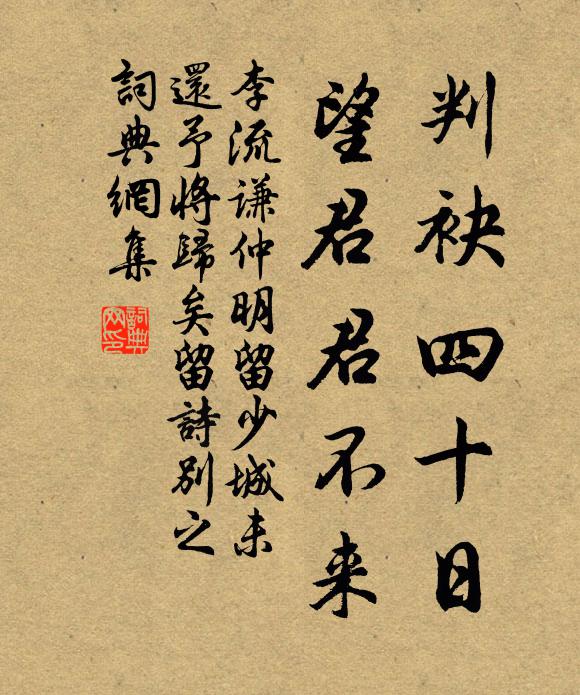 判袂四十日
望君君不来
李流谦仲明留少城未
還予將歸矣留詩别之
詞典網集
詞典網印